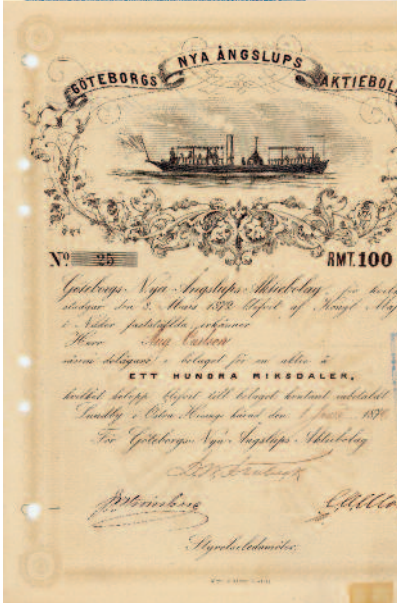 GÖTEBORGS NYA ÅNGSLUPS AKTIEBOL
Nº 25 RMT. 100
Göteborgs Nya Ångslups Aktiebolag, för hvilk
stadgar den 8. Mars 1872 blifvit af Kongl. Maj
i Nåder fastställda, erkänner
Herr Aug. Carlson
såsom delägare i bolaget för en aktie å
ETT HUNDRA RIKSDALER,
hvilket belopp blifvit till bolaget kontant inbetaldt
Lundby i Östra Hisings härad den 1 187
För Göteborgs Nya Ångslups Aktiebolag
Styrelseledamöter.